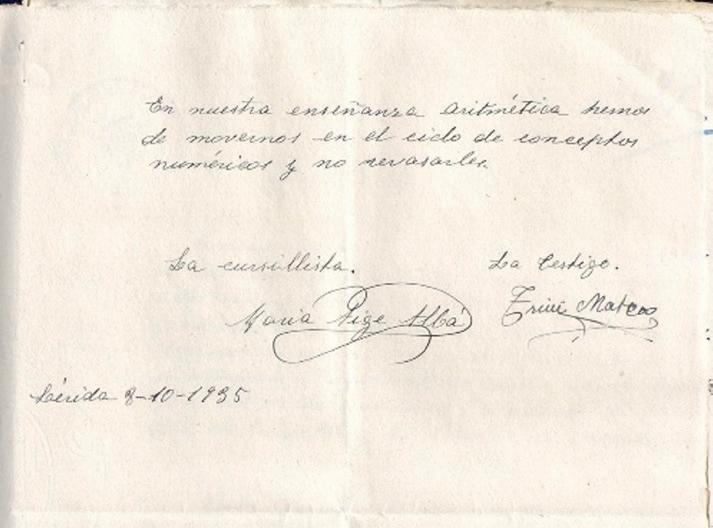 En nuestra enseñanza aritmética hemos
de movernos en el ciclo de conceptos
numéricos y no revasarles.
La cursillista.
La testigo.
Maria Pige Albá
Trini Mateos
Lérida 8-10-1935